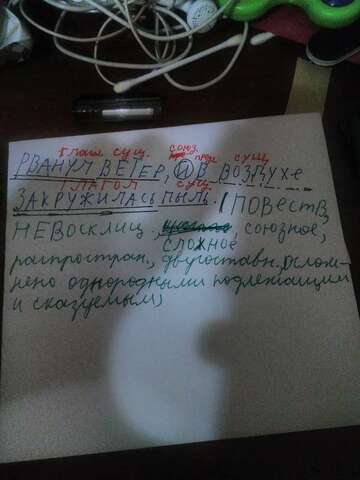 глаг. сущ. союз. предл. сущ.
РВАНУЛ ВЕТЕР, И В ВОЗДУХе
ГЛАГОЛ сущ.
ЗАКРУЖИЛАСЬ ПЫЛЬ. (ПОВЕСТВ,
НЕВОСКЛИЦ., союзное,
СЛОЖНОЕ
распростран., двусоставн. ослож-
нено однородными подлежащим
и сказуемым)